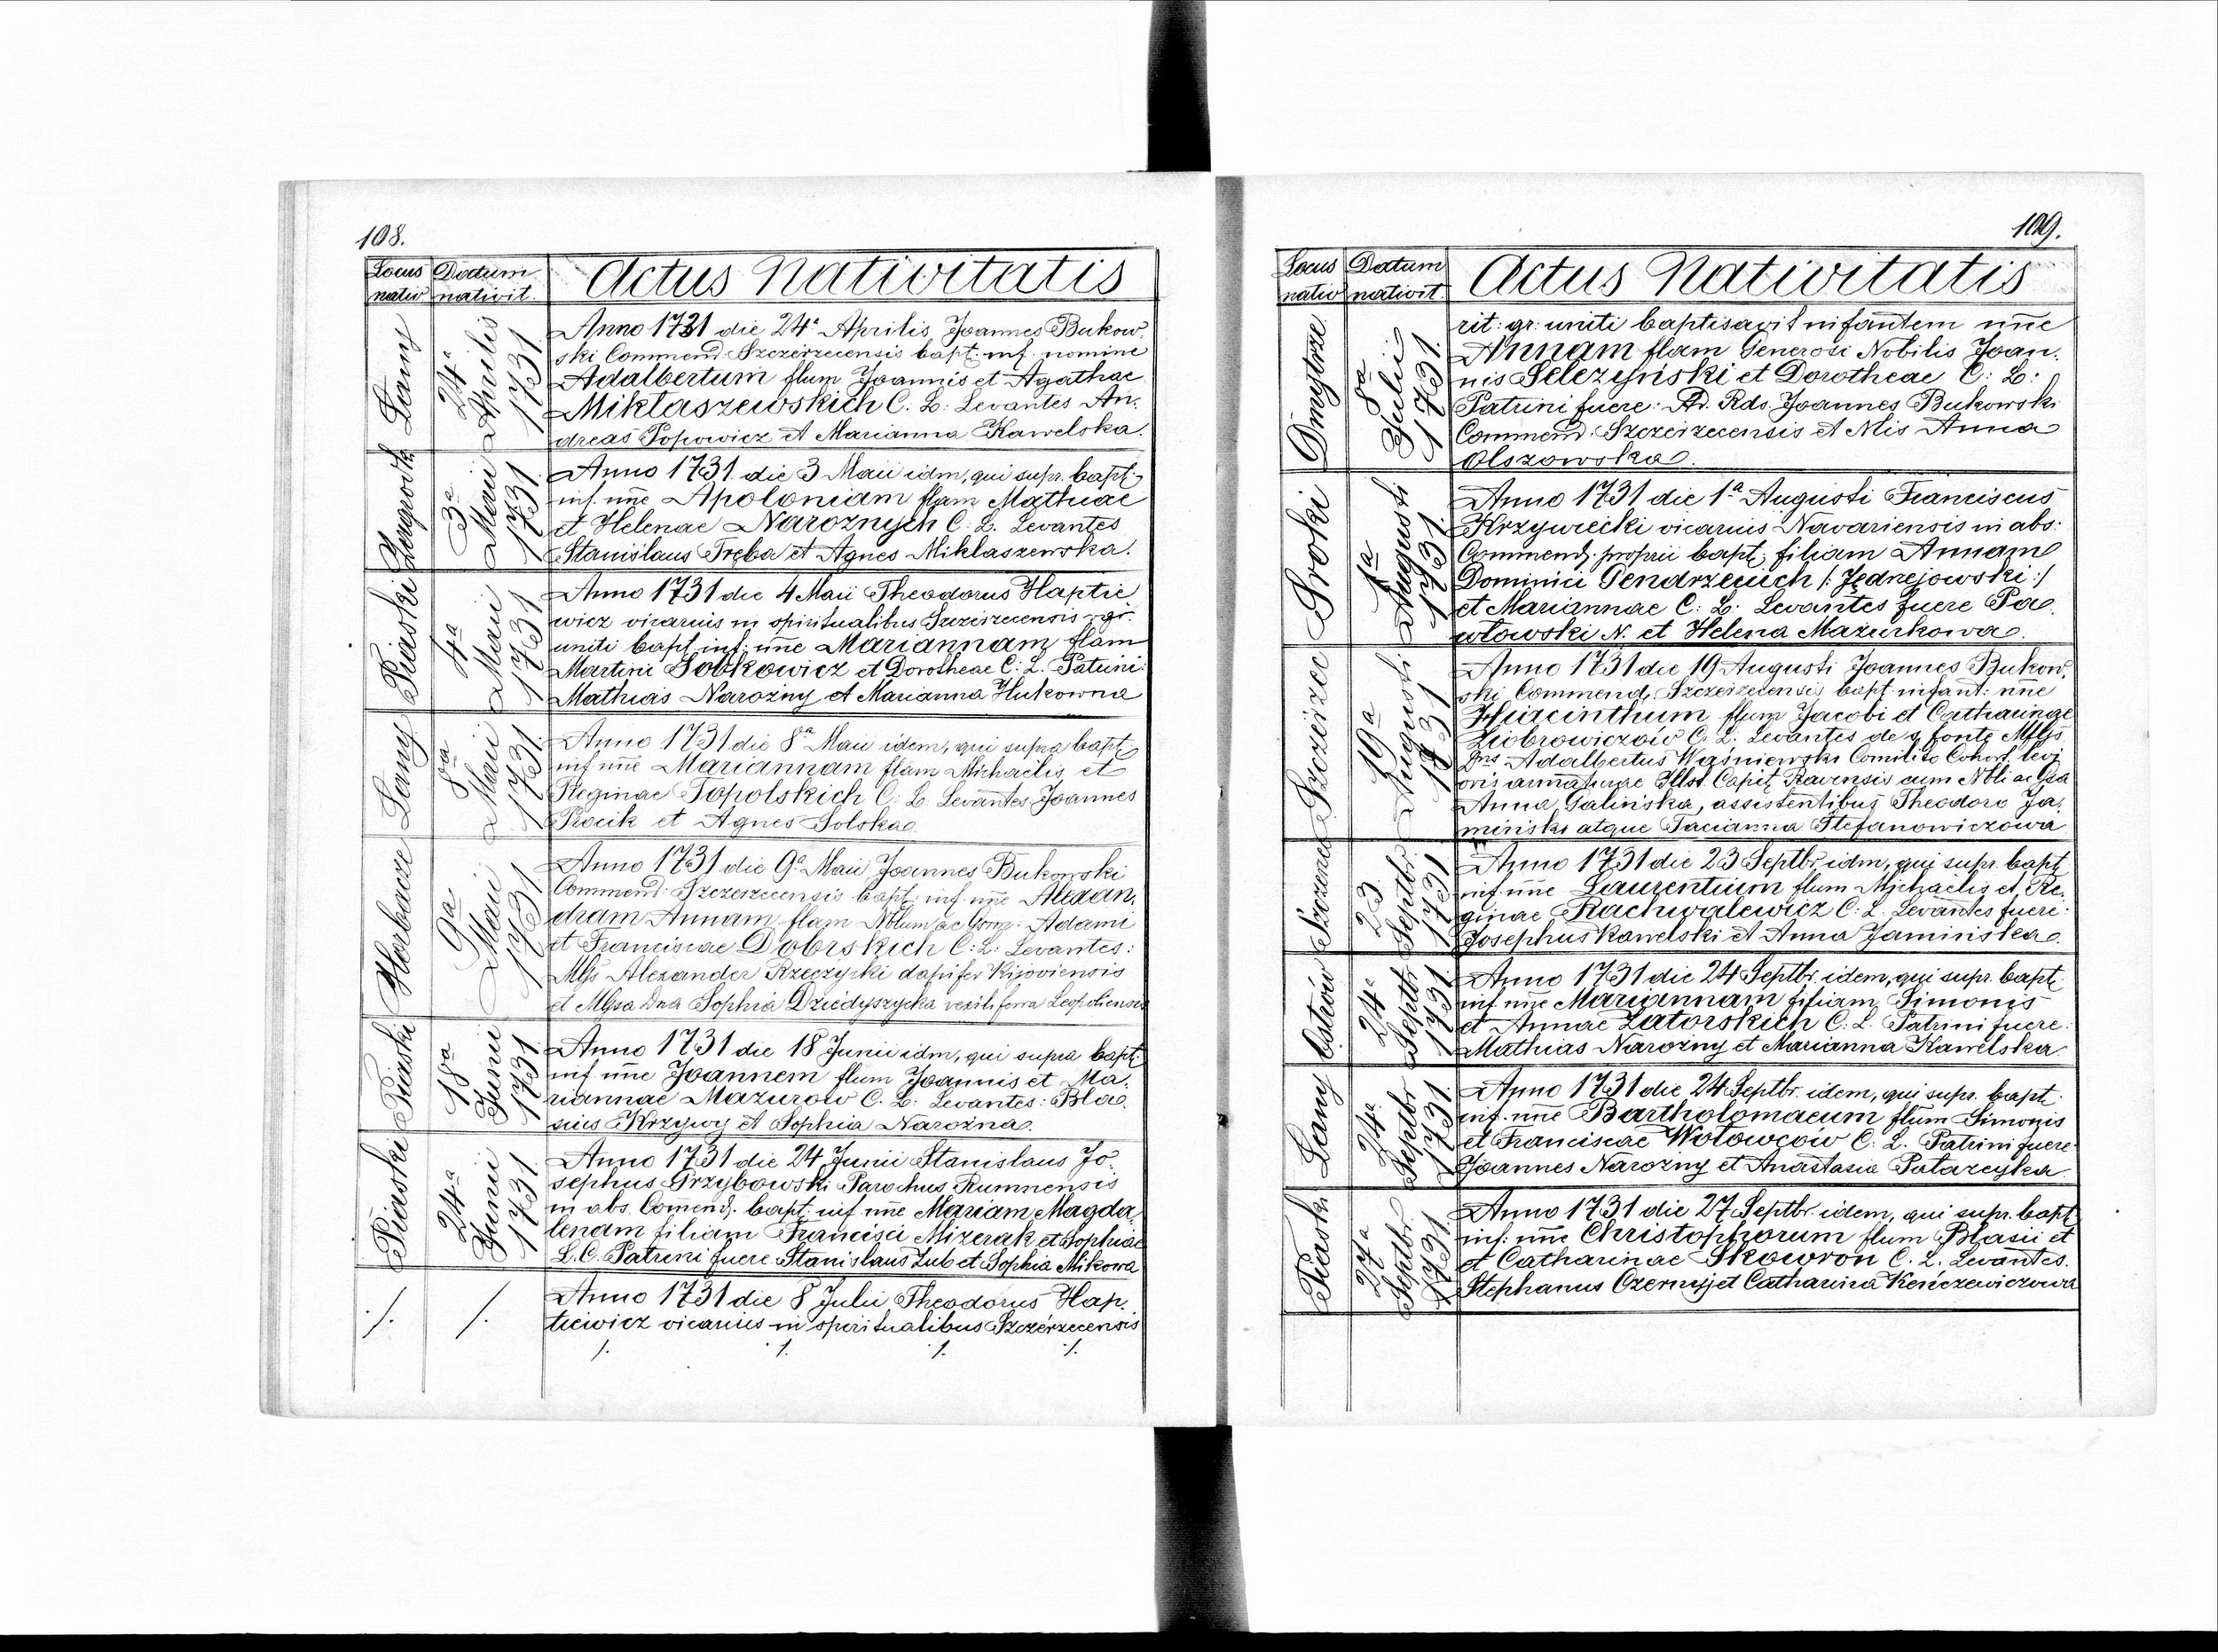 108.
Locus nativ
Datum nativit.
Actus Nativitatis
Łany
24ª Aprilis 1731
Anno 1731 die 24ª Aprilis Joannes Bukow.
ski Commend. Szczerzecensis bapt: inf. nomine
Adalbertum flum Joannis et Agathae
Miklaszewskich C. L: Levantes An.
dreas Popowicz et Marianna Kawelska.
3ª Maii 1731
Anno 1731. die 3 Maii idm, qui supr. bapt.
inf. nne Apoloniam flam Mathiae
et Helenae Narożnych C. L. Levantes
Stanislaus Tręba et Agnes Miklaszewska.
Piaski
4ª Maii 1731
Anno 1731 die 4 Maii Theodorus Haptie
wicz vicarius in spiritualibus Szczerzecensis gr.
uniti bapt. inf. nne Mariannam flam
Martini Sobkowicz et Dorotheae C: L. Patrini:
Mathias Narożny et Marianna Hukowna
Łany
8ª Maii 1731
Anno 1731 die 8ª Maii idem, qui supra bapt.
inf. nne Mariannam flam Michaelis et
Reginae Topolskich C: L: Levantes Joannes
Procik et Agnes Solska.
Horbacze
9ª Maii 1731
Anno 1731 die 9ª Maii Joannes Bukowski
Commend: Szczerzecensis bapt: inf. nne Alexan.
dram Annam flam Nblum ac Gsor. Adami
et Franciscae Dobrskich C: L: Levantes:
Mgfs Alexander Rzeczycki dapifer Kijoviensis
et Mgsa Dna Sophia Dziedyszycka vexiliferra Leopoliensis
Piaski
18ª Junii 1731
Anno 1731 die 18 Junii idm, qui supra bapt.
inf. nne Joannem flum Joannis et Ma.
riannae Mazurow C. L: Levantes: Bla.
sius Krzywy et Sophia Narożna.
Piaski
24ª Junii 1731
Anno 1731 die 24 Junii Stanislaus Jo.
sephus Grzybowski Parochus Rumnensis
in abs. Comend. bapt. inf. nne Mariam Magda.
lenam filiam Francisci Mizerak et Sophiae
L. C. Patrini fuere Stanislaus Zub et Sophia Mikowa
/.
/.
Anno 1731 die 8 Julii Theodorus Hap.
tiewicz vicarius in spiritualibus Szczerzecensis
/. /. /. /.
109.
Locus nativ
Datum nativit.
Actus Nativitatis
Dmytrze
8ª Julii 1731.
rit: gr: uniti baptisavit infantem nne
Annam flam Generosi Nobilis Joan.
nis Selezyński et Dorotheae C: L:
Patrini fuere: Ad. Rds Joannes Bukowski
Commend. Szczerzecensis et Nlis Anna
Olszowska.
1ª Augusti 1731.
Anno 1731 die 1ª Augusti Franciscus
Krzywiecki vicarius Navariensis in abs:
Commend. proprii bapt. filiam Annam
Dominici Gendrzeiuch /: Jędrzejowski :/
et Mariannae C: L: Levantes fuere Pa.
włowski N. et Helena Mazurkowa.
Szczérzec
19ª Augusti 1731
Anno 1731 die 19 Augusti Joannes Bukow.
ski Commend. Szczerzecensis bapt. infant: nne
Hiacinthum flum Jacobi et Catharinae
Ziobrowiczów C. L. Levantes de s. fonte Mgfs
Dns Adalbertus Waśniewski Comilito Cohort. levi
oris armaturae Illst. Capit. Ravensis cum Nbli ac Gsa
Anna Galińska, assistentibus Theodoro Ja.
miński atque Tacianna Stefanowiczowa
23 Septbr. 1731
Anno 1731 die 23 Septbr idm, qui supr. bapt
inf. nne Laurentium flum Michaelis et Re.
ginae Rachwalewicz C: L. Levantes fuere:
Josephus Kawelski et Anna Jamińska.
Ostrów
24ª Septbr 1731
Anno 1731 die 24 Septbr. idem, qui supr. bapt:
inf. nne Mariannam filiam Simonis
et Annae Zatorskich C: L. Patrini fuere:
Mathias Narożny et Marianna Kawelska
Łany
24ª Septbr 1731.
Anno 1731 die 24 Septbr. idem, qui supr. bapt.
inf. nne Bartholomaeum flum Simonis
et Franciscae Wołowców C: L. Patrini fuere
Joannes Narożny et Anastasia Patarcyka
Piaski
27ª Septbr. 1731.
Anno 1731 die 27 Septbr. idem, qui supr. bapt
inf. nne Christophorum flum Blasii et
et Catharinae Skowron C. L. Levantes.
Stephanus Czernyj et Catharina Kenczewiczowa